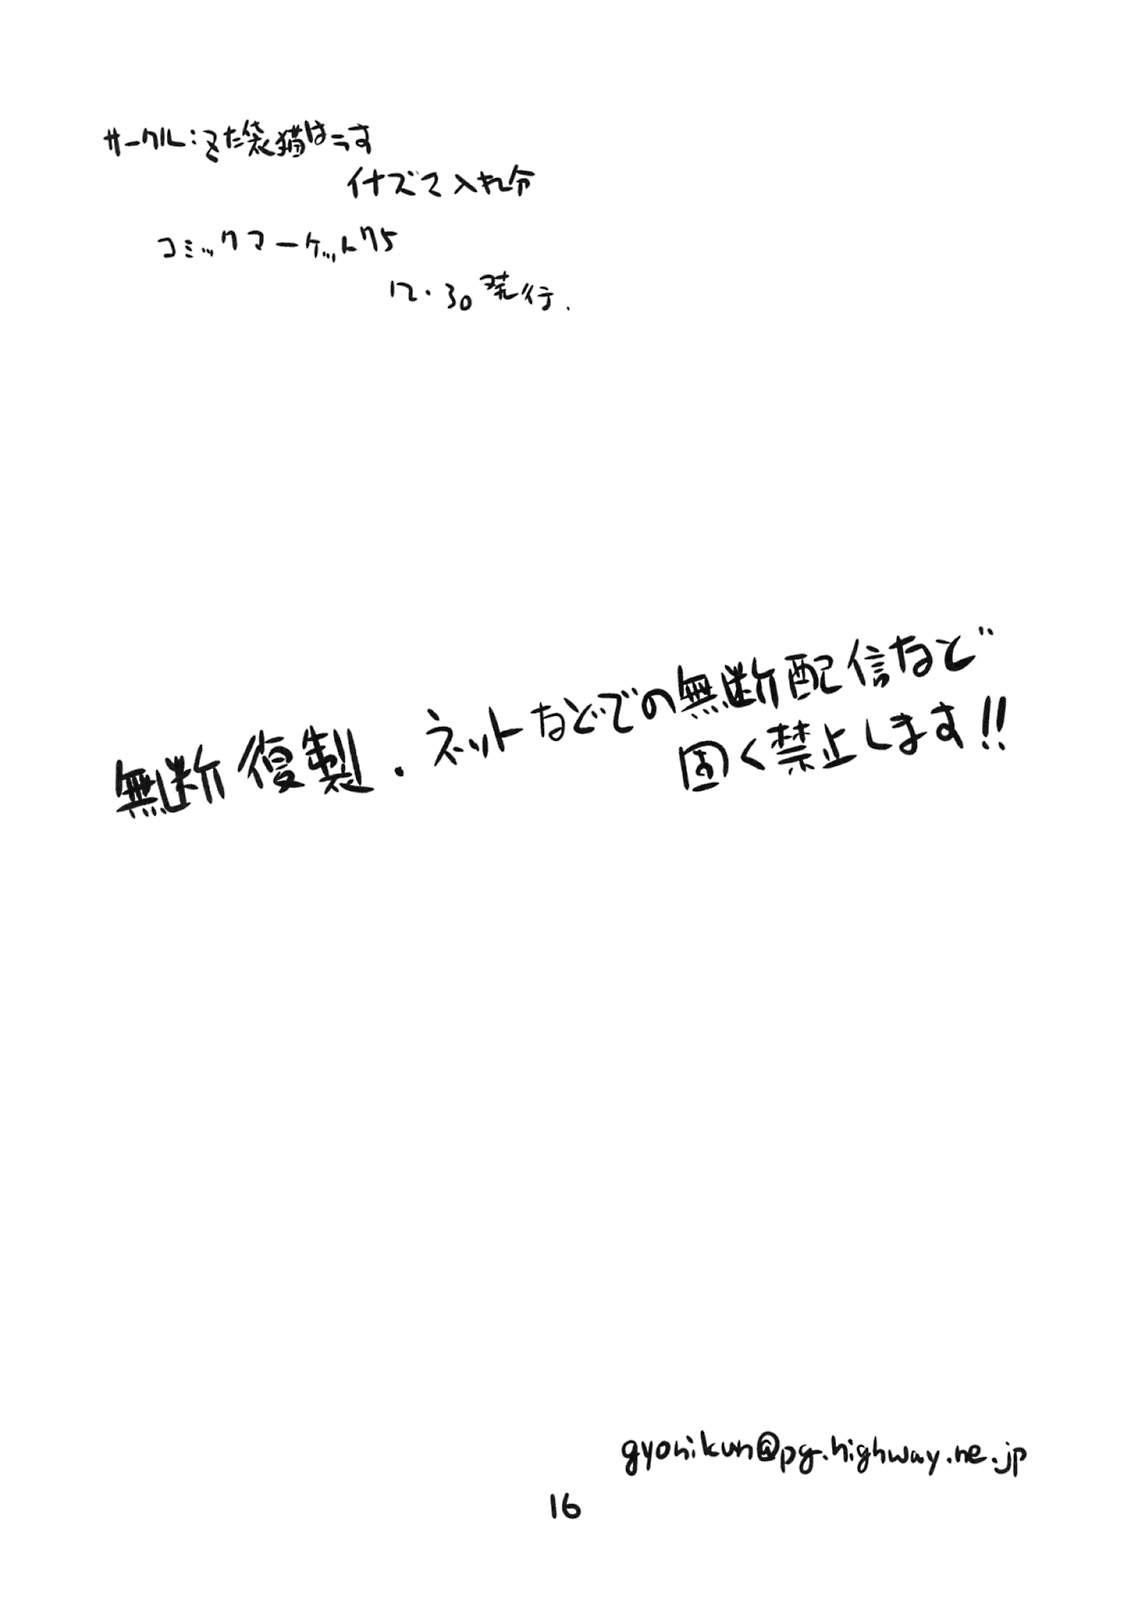 サークル：きた袋猫はうす
イナズマ入れ分
コミックマーケット75
12・30発行.
無断復製．ネットなどでの無断配信など
固く禁止します!!
gyonikun@pg.highway.ne.jp
16